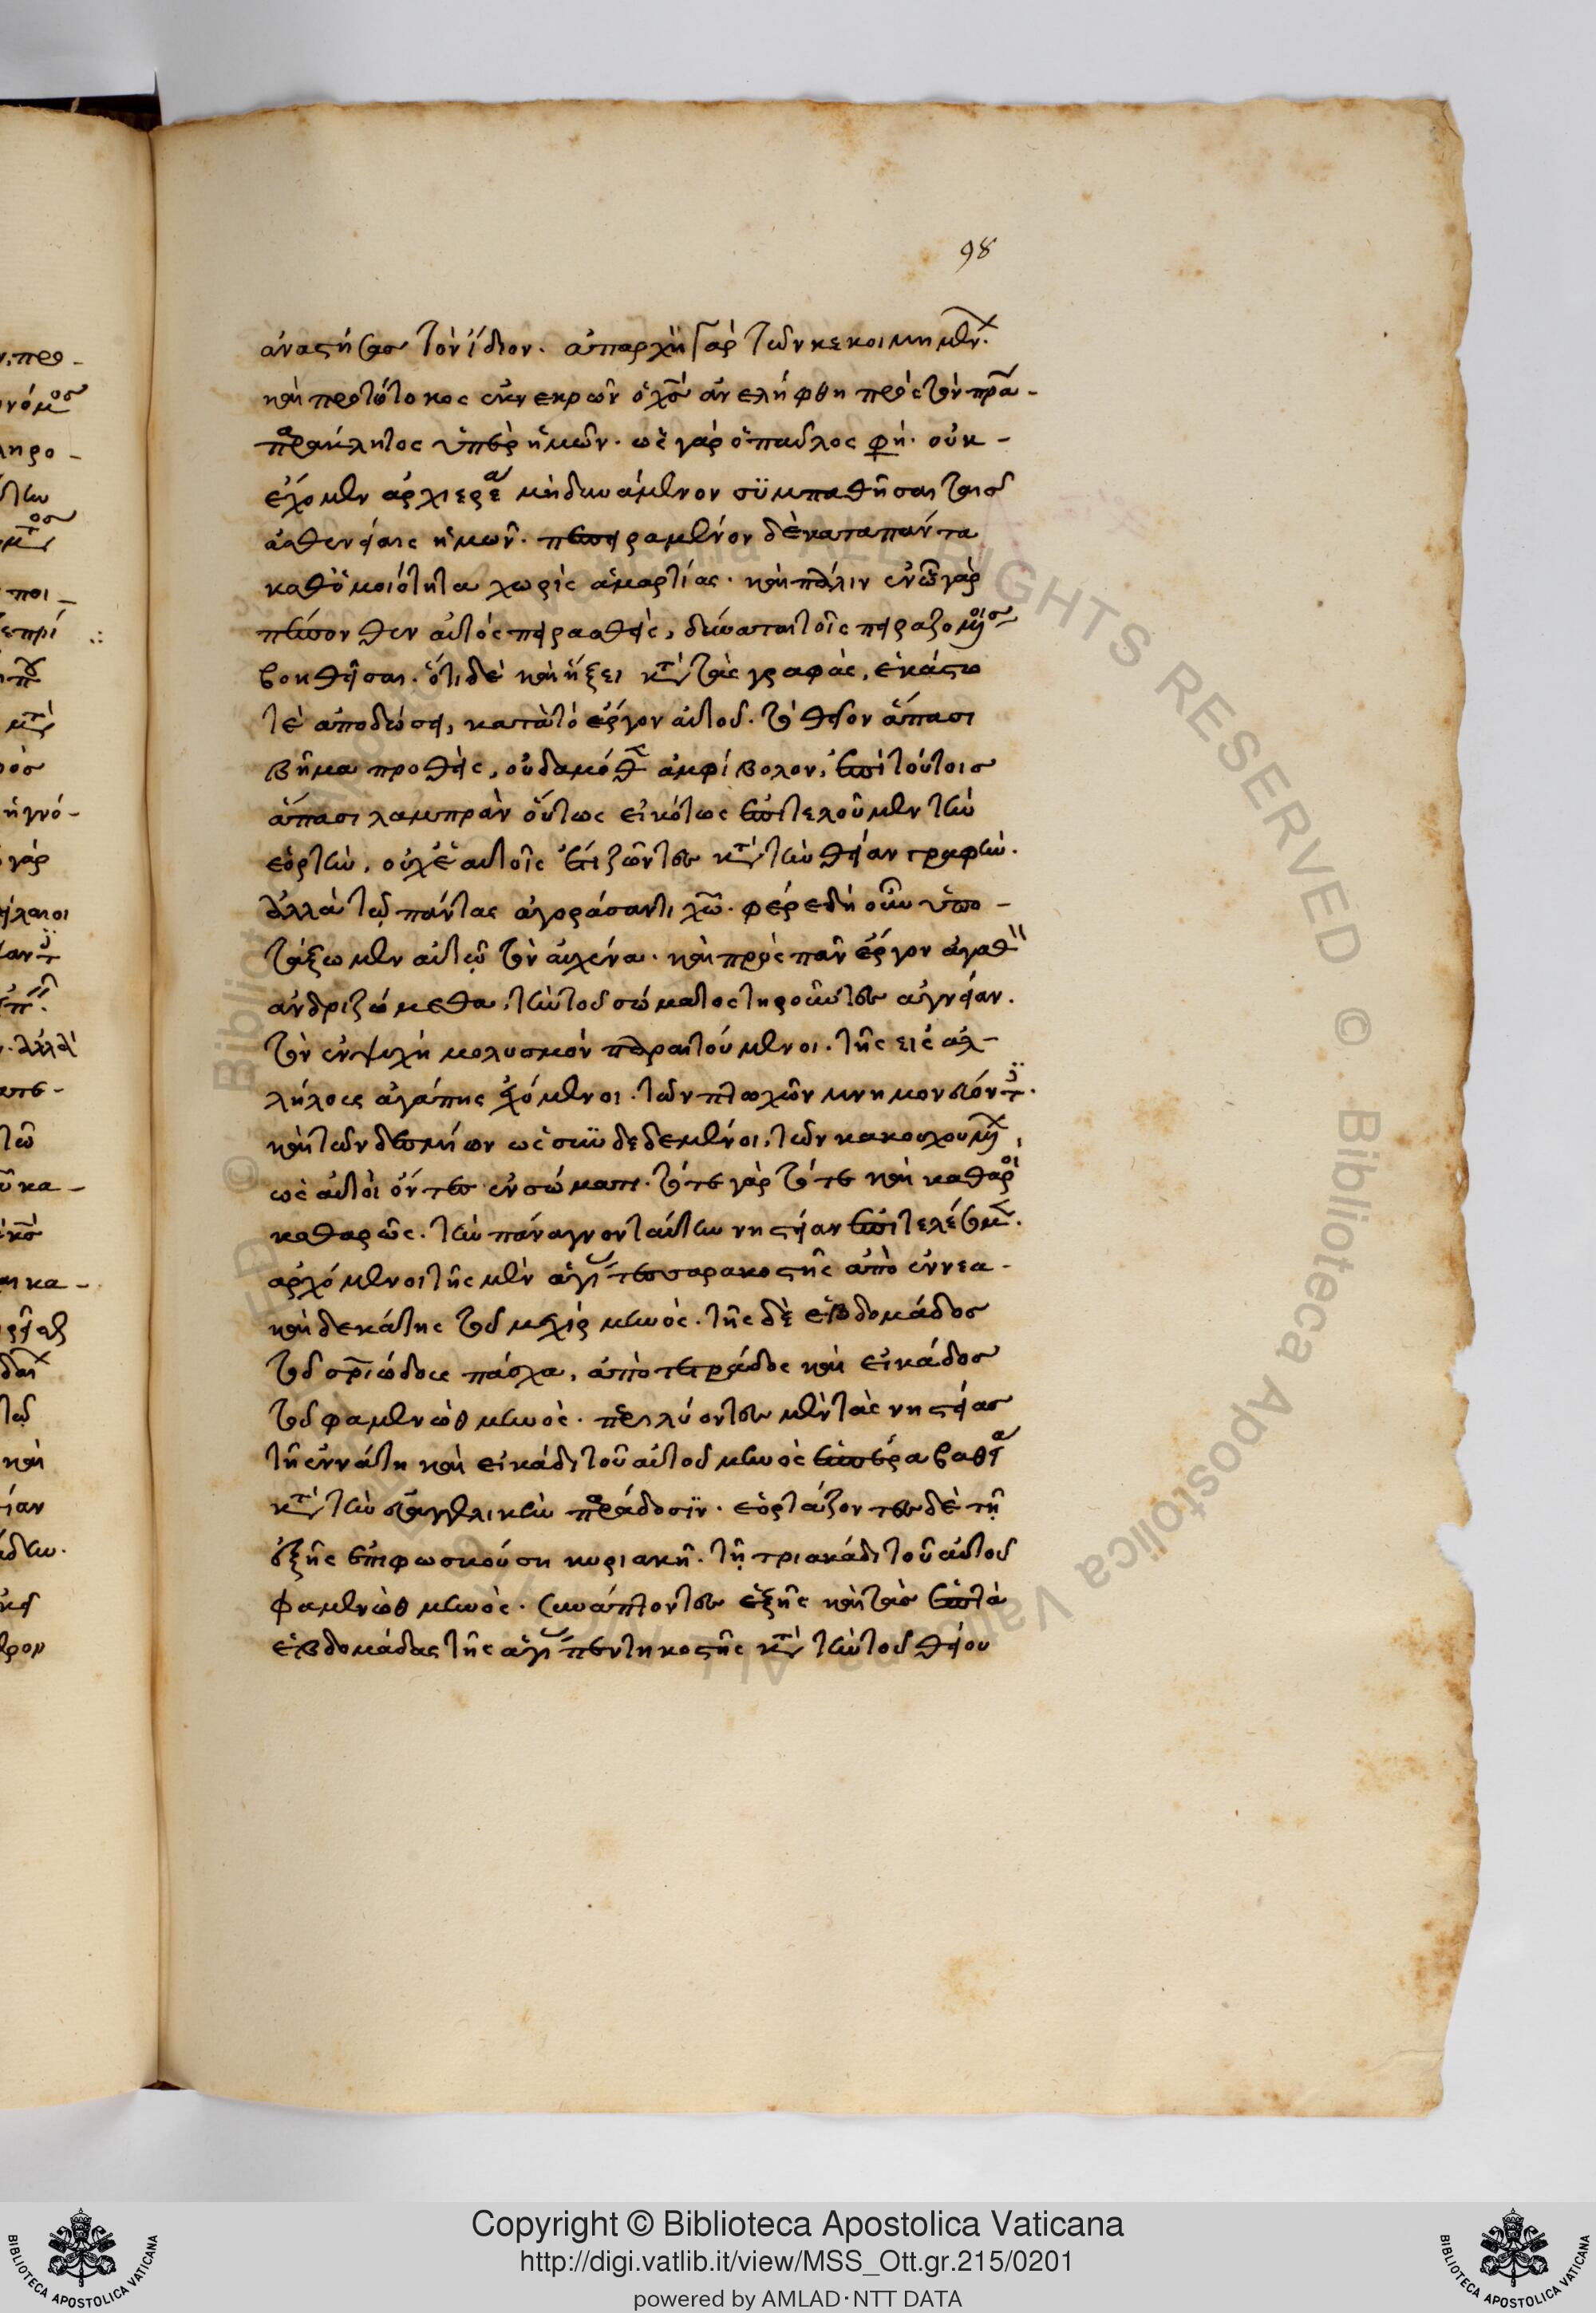 98
ἀναστήσας τὸν ἴδιον. ἀπαρχὴ γὰρ τῶν κεκοιμημένων.
καὶ πρωτότοκος ἐκ νεκρῶν ὁ χς ἀνελήφθη πρὸς τὸν πρα-
παράκλητος ὑπὲρ ἡμῶν. ὡς γὰρ ὁ παῦλος φη. οὐκ
ἔχομεν ἀρχιερέα μὴ δυνάμενον συμπαθῆσαι ταῖς
ἀσθενείαις ἡμῶν. πεπειραμένον δὲ κατὰ πάντα
καθ' ὁμοιότητα χωρὶς ἁμαρτίας. καὶ πάλιν ἐν ᾧ γὰρ
πέπονθεν αὐτὸς πειρασθεὶς, δύναται τοῖς πειραζομένοις
βοηθῆσαι. ὅτι δὲ καὶ ἥξει κατὰ τὰς γραφάς, ἑκάστω
τὲ ἀποδώσει, κατὰ τὸ ἔργον αὐτοῦ. τὸ θεῖον ἅπασι
βῆμα προθεὶς, οὐδαμόθεν ἀμφίβολον, ἐπὶ τούτοις
ἅπασι λαμπρὰν οὕτως εἰκότως ἐπιτελοῦμεν τὴν
ἑορτὴν, οὐχ ἑαυτοῖς ἔτι ζῶντες κατὰ τὴν θείαν γραφὴν.
ἀλλὰ τῷ πάντας ἀγοράσαντι χω. φέρε δὴ οὖν ὑπο-
τάξωμεν αὐτῷ τὸν αὐχένα. καὶ πρὸς πᾶν ἔργον ἀγαθὸν
ἀνδριζώμεθα, τὴν τοῦ σώματος τηροῦντες ἁγνείαν.
τὸν ἐν ψυχῇ μολυσμὸν παραιτούμενοι. τῆς εἰς ἀλ-
λήλους ἀγάπης ἐχόμενοι. τῶν πτωχῶν μνημονεύοντες.
καὶ τῶν δεσμίων ὡς συνδεδεμένοι, τῶν κακουχουμένων,
ὡς αὐτοὶ ὄντες ἐν σώματι. τότε γὰρ τότε καὶ καθαροὶ
καθαρῶς. τὴν πάναγνον ταύτην νηστείαν ἐπιτελέσομεν.
ἀρχόμενοι τῆς μὲν ἁγίας τεσσαρακοστῆς ἀπὸ ἐννεα-
καιδεκάτης τοῦ μεχὶρ μηνὸς. τῆς δὲ ἑβδομάδος
τοῦ σωτηριώδους πάσχα, ἀπὸ τετράδος καὶ εἰκάδος
τοῦ φαμενὼθ μηνὸς. περιλύοντες μὲν τὰς νηστείας
τῇ ἐννάτη καὶ εἰκάδι τοῦ αὐτοῦ μηνὸς ἑσπέρα βαθεῖα
κατὰ τὴν εὐαγγελικὴν παράδοσιν. ἑορτάζοντες δὲ τῇ
ἑξῆς ἐπιφωσκούση κυριακῇ. τῇ τριακάδι τοῦ αὐτοῦ
φαμενὼθ μηνὸς. συνάπτοντες ἑξῆς καὶ τὰς ἑπτὰ
ἑβδομάδας τῆς ἁγίας πεντηκοστῆς κατὰ τὴν τοῦ θείου
Copyright © Biblioteca Apostolica Vaticana
http://digi.vatlib.it/view/MSS_Ott.gr.215/0201
powered by AMLAD·NTT DATA